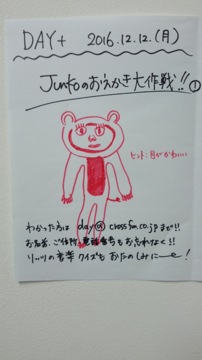 DAY+ 2016.12.12.(月)
Junkoのおえかき大作戦!! ①
ヒント:目がかわいい
わかった方は day@crossfm.co.jp まで!!
お名前、ご住所、電話番号もお忘れなく!!
リッツの音楽クイズもおたのしみにー!